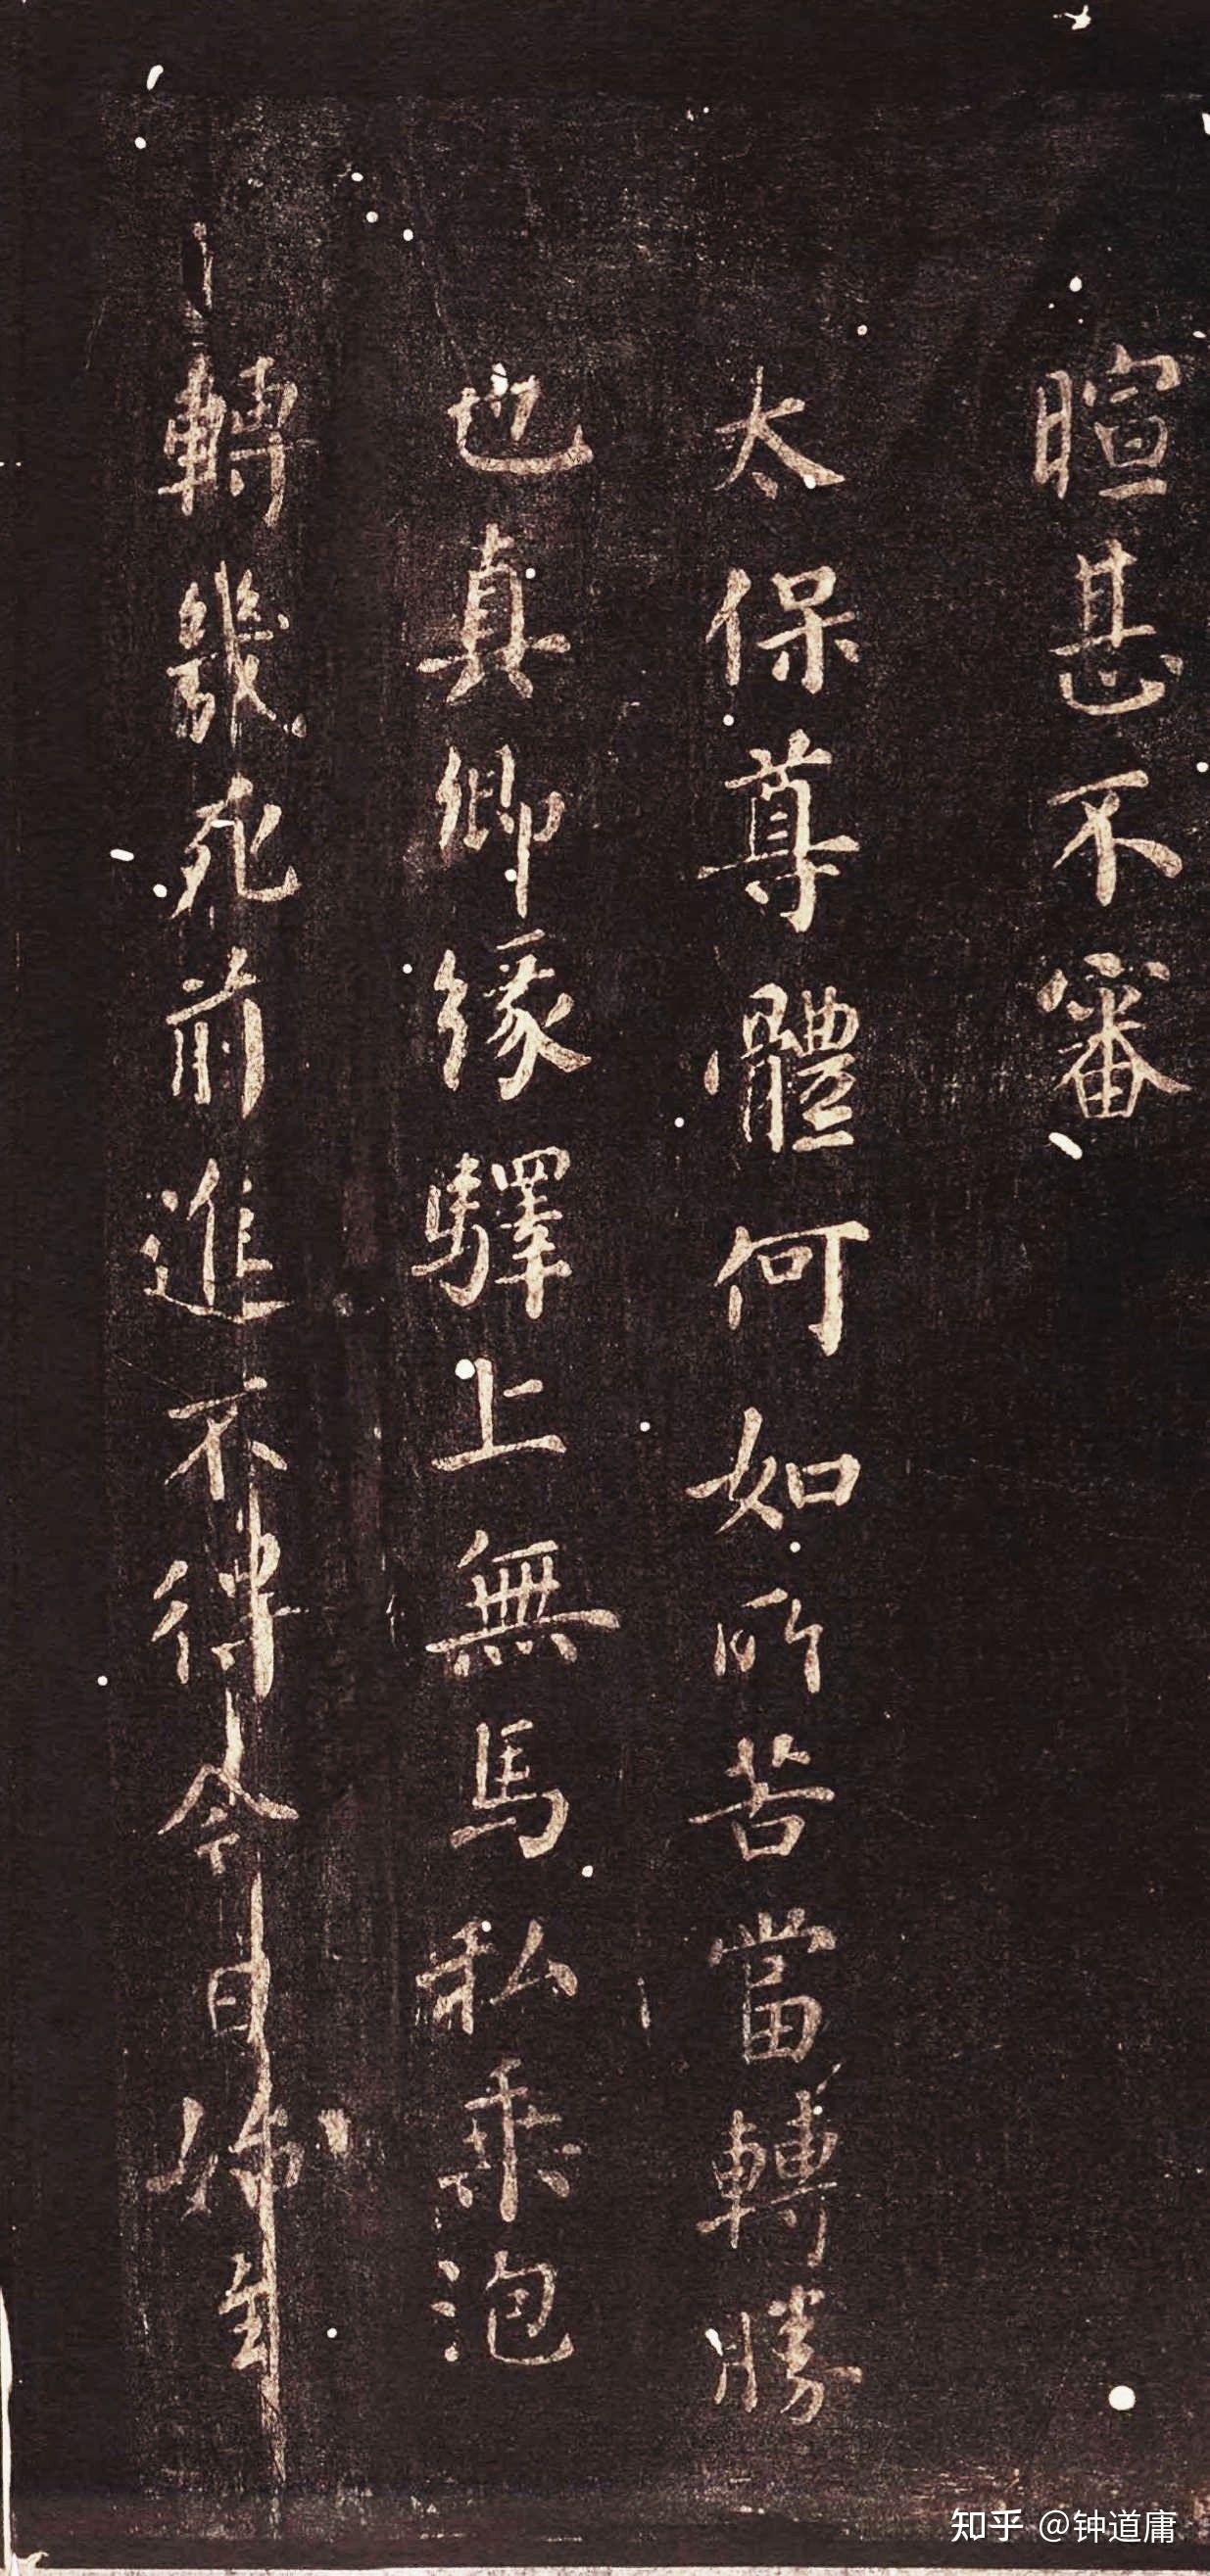 暄甚不審
太保尊體何如所苦當轉勝
也真卿緣驛上無馬私乘泡
轉幾死前進不得今日始至
知乎 @钟道庸